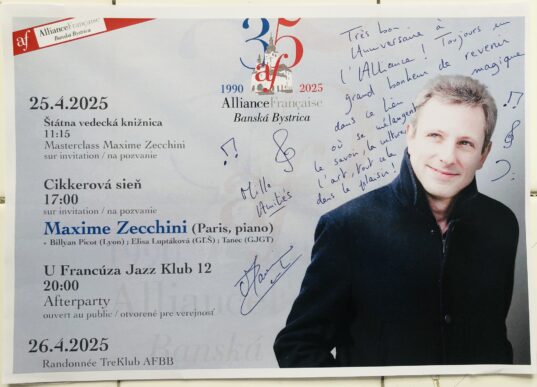 af AllianceFrançaise
Banská Bystrica
35
af
1990 2025
AllianceFrançaise
Banská Bystrica
Très bon
Anniversaire à
l'Alliance ! Toujours un
grand bonheur de revenir
dans ce lieu magique
où se mélangent
le savoir, la culture
l'art, tout cela
dans le plaisir !
Mille
Amitiés
25.4.2025
Štátna vedecká knižnica
11:15
Masterclass Maxime Zecchini
sur invitation / na pozvanie
Cikkerová sieň
17:00
sur invitation / na pozvanie
Maxime Zecchini (Paris, piano)
+ Billyan Picot (Lyon) ; Elisa Luptáková (GĽŠ) ; Tanec (GJGT)
U Francúza Jazz Klub 12
20:00
Afterparty
ouvert au public / otvorené pre verejnosť
26.4.2025
Randonnée TreKlub AFBB